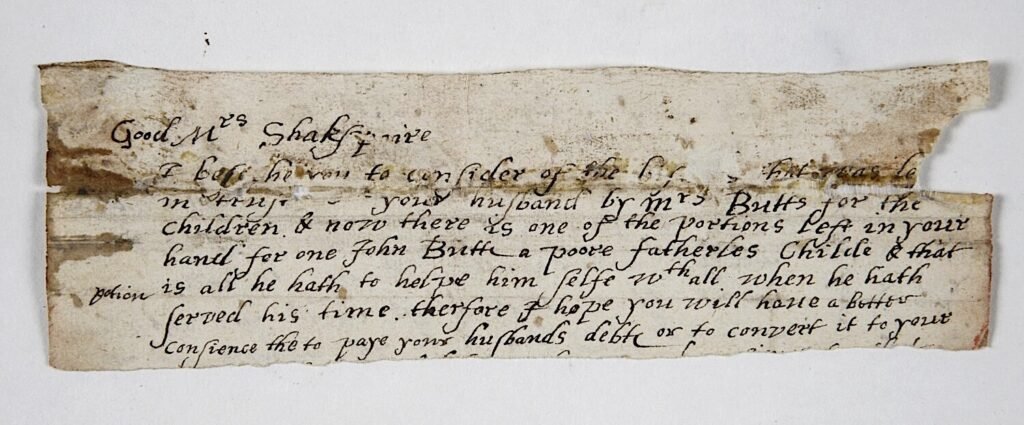 Good Mrs Shakspaire
I bese he you to consider of the that was le
in trust your husband by Mrs Butts for the
children & now there is one of the portions left in your
hand for one John Butte a poore fatherles Childe & that
potion is all he hath to helpe him selfe wth all when he hath
served his time. therfore I hope you will have a better
Consience the to paye your husbands debte or to convert it to your